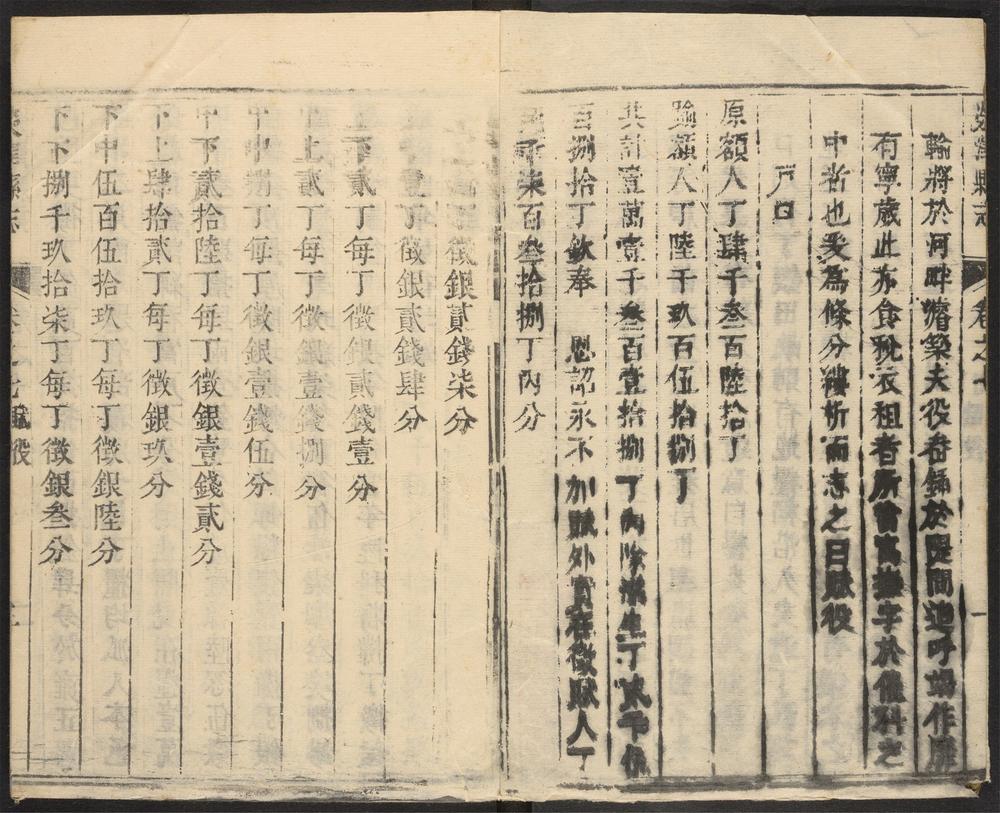 縣志 卷之七
輸將於河畔 築夫役 於隄間追呼 作
有寧歲此亦食 衣租者所 撫字於催科之
中者也爰為條分縷析而志之曰賦役
戶口
原額人丁肆千叁百陸拾丁
踰額人丁陸千玖百伍拾捌丁
共計壹萬壹千叁百壹拾捌丁內除 生丁
百捌拾丁欽奉 恩詔永不加賦外實在徵賦人丁
千柒百叁拾捌丁內分
丁徵銀貳錢柒分
壹丁徵銀貳錢肆分
上下貳丁每丁徵銀貳錢壹分
中上貳丁每丁徵銀壹錢捌分
中中捌丁每丁徵銀壹錢伍分
中下貳拾陸丁每丁徵銀壹錢貳分
下上肆拾貳丁每丁徵銀玖分
下中伍百伍拾玖丁每丁徵銀陸分
下下捌千玖拾柒丁每丁徵銀叁分
縣志 卷之七 賦役